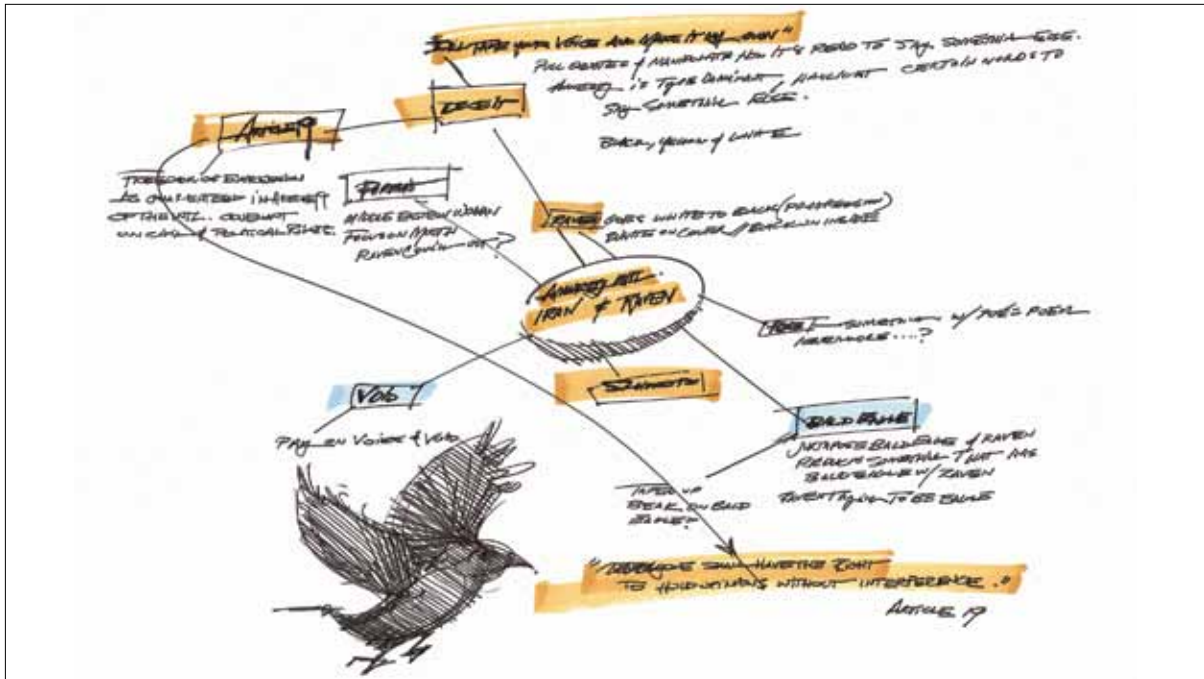 "I'LL TAKE YOUR VOICE AND MAKE IT MY OWN"
PULL QUOTES & MANIPULATE HOW IT'S READ TO SAY SOMETHING ELSE.
IS TYPE DOMINANT, HIGHLIGHT CERTAIN WORDS TO
SAY SOMETHING ELSE.
BLACK, & WHITE
DECEIT
ARTICLE 19
FREEDOM OF EXPRESSION
AS GUARANTEED IN ARTICLE 19
OF THE INTL. COVENANT
ON CIVIL & POLITICAL RIGHTS.
MIDDLE EASTERN WOMAN
FOCUS ON MOUTH
RAVEN COMING OUT?
RAVEN GOES WHITE TO BLACK (PROGRESSION)
WHITE ON COVER // BLACK ON INSIDE
AMNESTY INTL.
IRAN & RAVEN
POE SOMETHING W/ POE'S POEM
NEVERMORE....?
VOID
PLAY ON VOICE & VOID
BALD EAGLE
JUXTAPOSE BALD EAGLE & RAVEN
PRODUCE SOMETHING THAT HAS
BALD EAGLE W/ RAVEN
RAVEN TRYING TO BE EAGLE
TAPED UP
BEAK ON BALD
EAGLE?
"EVERYONE SHALL HAVE THE RIGHT
TO HOLD OPINIONS WITHOUT INTERFERENCE."
ARTICLE 19